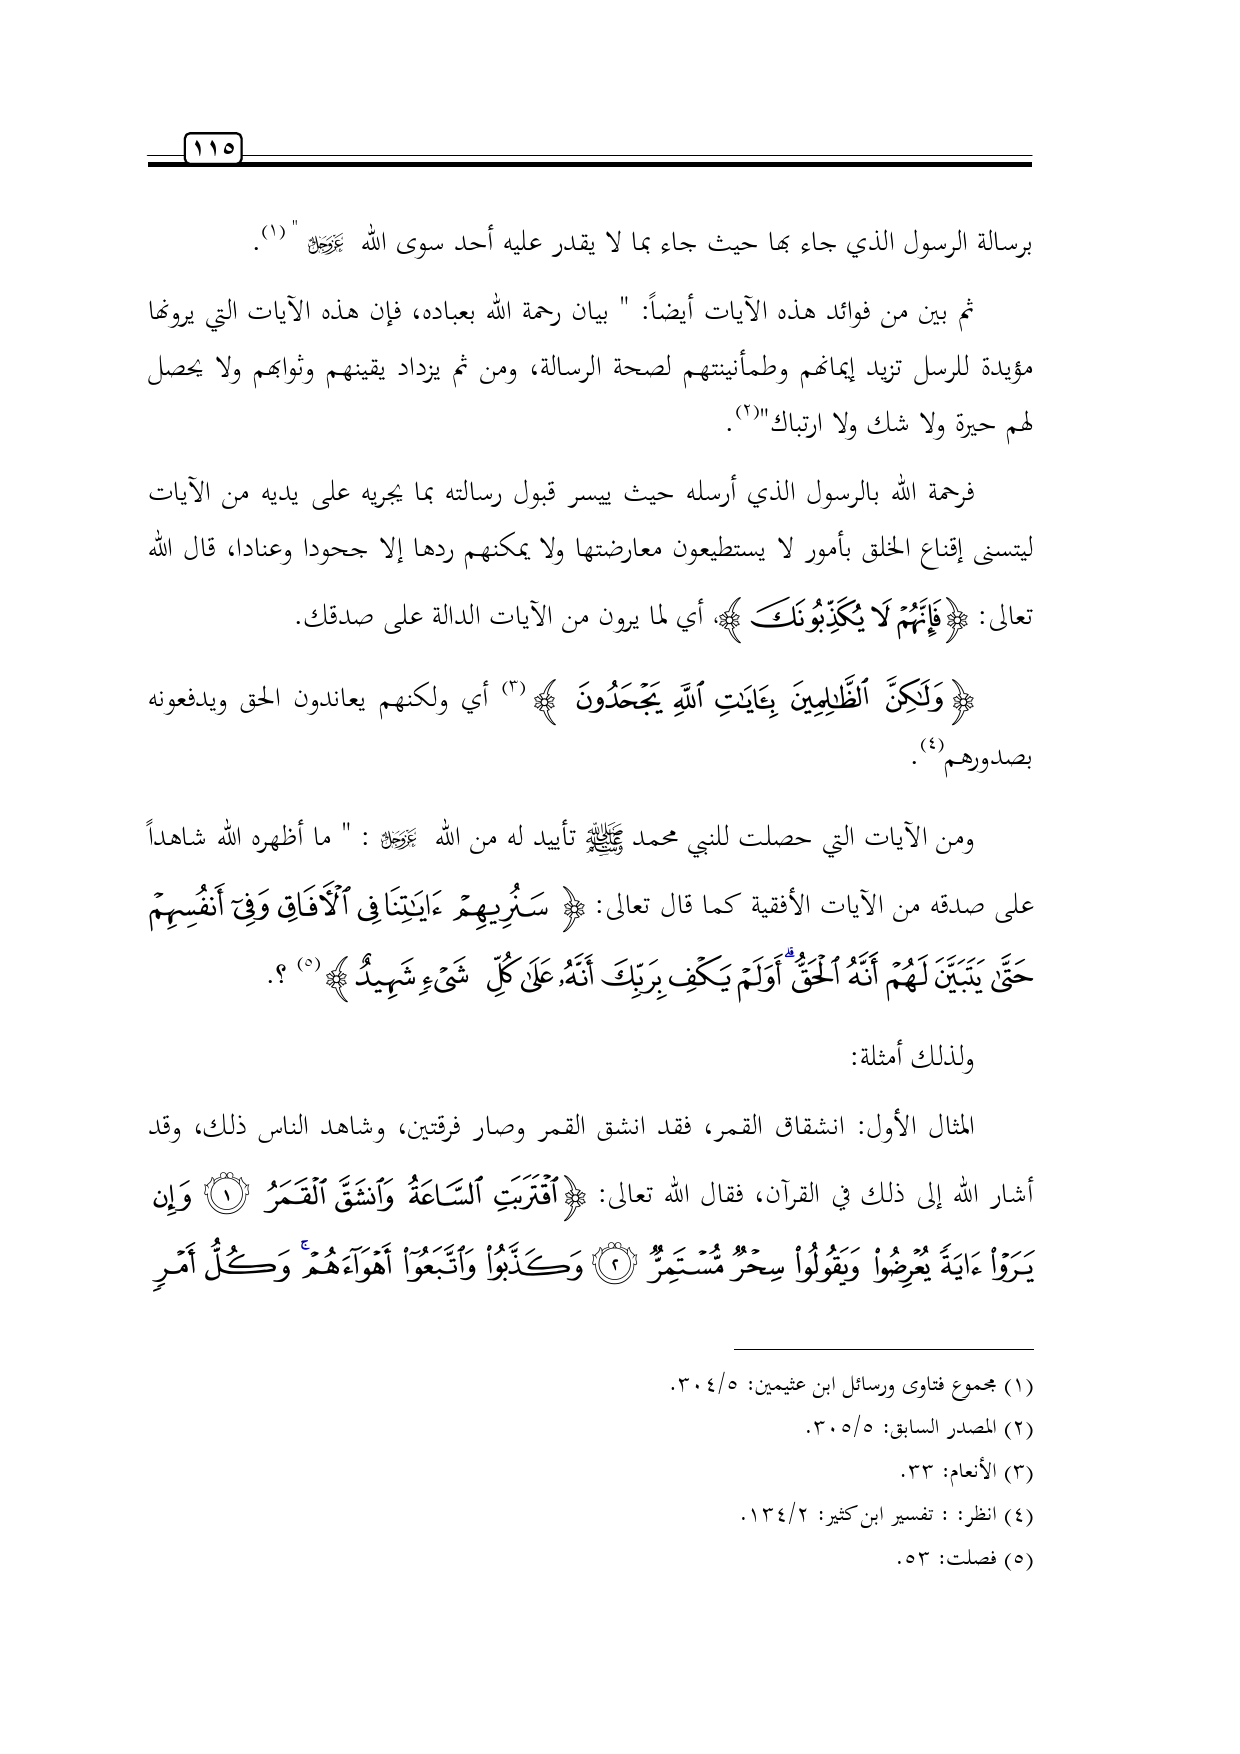 ١١٥
برسالة الرسول الذي جاء بها حيث جاء بما لا يقدر عليه أحد سوى الله عَزَّوَجَلَّ " (١).
ثم بين من فوائد هذه الآيات أيضاً: " بيان رحمة الله بعباده، فإن هذه الآيات التي يرونها
مؤيدة للرسل تزيد إيمانهم وطمأنينتهم لصحة الرسالة، ومن ثم يزداد يقينهم وثوابهم ولا يحصل
لهم حيرة ولا شك ولا ارتباك"(٢).
فرحمة الله بالرسول الذي أرسله حيث ييسر قبول رسالته بما يجريه على يديه من الآيات
ليتسنى إقناع الخلق بأمور لا يستطيعون معارضتها ولا يمكنهم ردها إلا جحودا وعنادا، قال الله
تعالى: ﴿فَإِنَّهُمْ لَا يُكَذِّبُونَكَ ﴾، أي لما يرون من الآيات الدالة على صدقك.
﴿وَلَٰكِنَّ ٱلظَّٰلِمِينَ بِـَٔايَٰتِ ٱللَّهِ يَجْحَدُونَ ﴾ (٣) أي ولكنهم يعاندون الحق ويدفعونه
بصدورهم(٤).
ومن الآيات التي حصلت للنبي محمد ﷺ تأييد له من الله عَزَّوَجَلَّ : " ما أظهره الله شاهداً
على صدقه من الآيات الأفقية كما قال تعالى: ﴿ سَنُرِيهِمْ ءَايَٰتِنَا فِى ٱلْءَافَاقِ وَفِىٓ أَنفُسِهِمْ
حَتَّىٰ يَتَبَيَّنَ لَهُمْ أَنَّهُ ٱلْحَقُّ ۗ أَوَلَمْ يَكْفِ بِرَبِّكَ أَنَّهُۥ عَلَىٰ كُلِّ شَىْءٍ شَهِيدٌ﴾(٥) ؟.
ولذلك أمثلة:
المثال الأول: انشقاق القمر، فقد انشق القمر وصار فرقتين، وشاهد الناس ذلك، وقد
أشار الله إلى ذلك في القرآن، فقال الله تعالى: ﴿ٱقْتَرَبَتِ ٱلسَّاعَةُ وَٱنشَقَّ ٱلْقَمَرُ ١ وَإِن
يَرَوْا۟ ءَايَةً يُعْرِضُوا۟ وَيَقُولُوا۟ سِحْرٌ مُّسْتَمِرٌّ ٢ وَكَذَّبُوا۟ وَٱتَّبَعُوٓا۟ أَهْوَآءَهُمْ ۚ وَكُلُّ أَمْرٍ
(١) مجموع فتاوى ورسائل ابن عثيمين: ٣٠٤/٥.
(٢) المصدر السابق: ٣٠٥/٥.
(٣) الأنعام: ٣٣.
(٤) انظر: : تفسير ابن كثير: ١٣٤/٢.
(٥) فصلت: ٥٣.